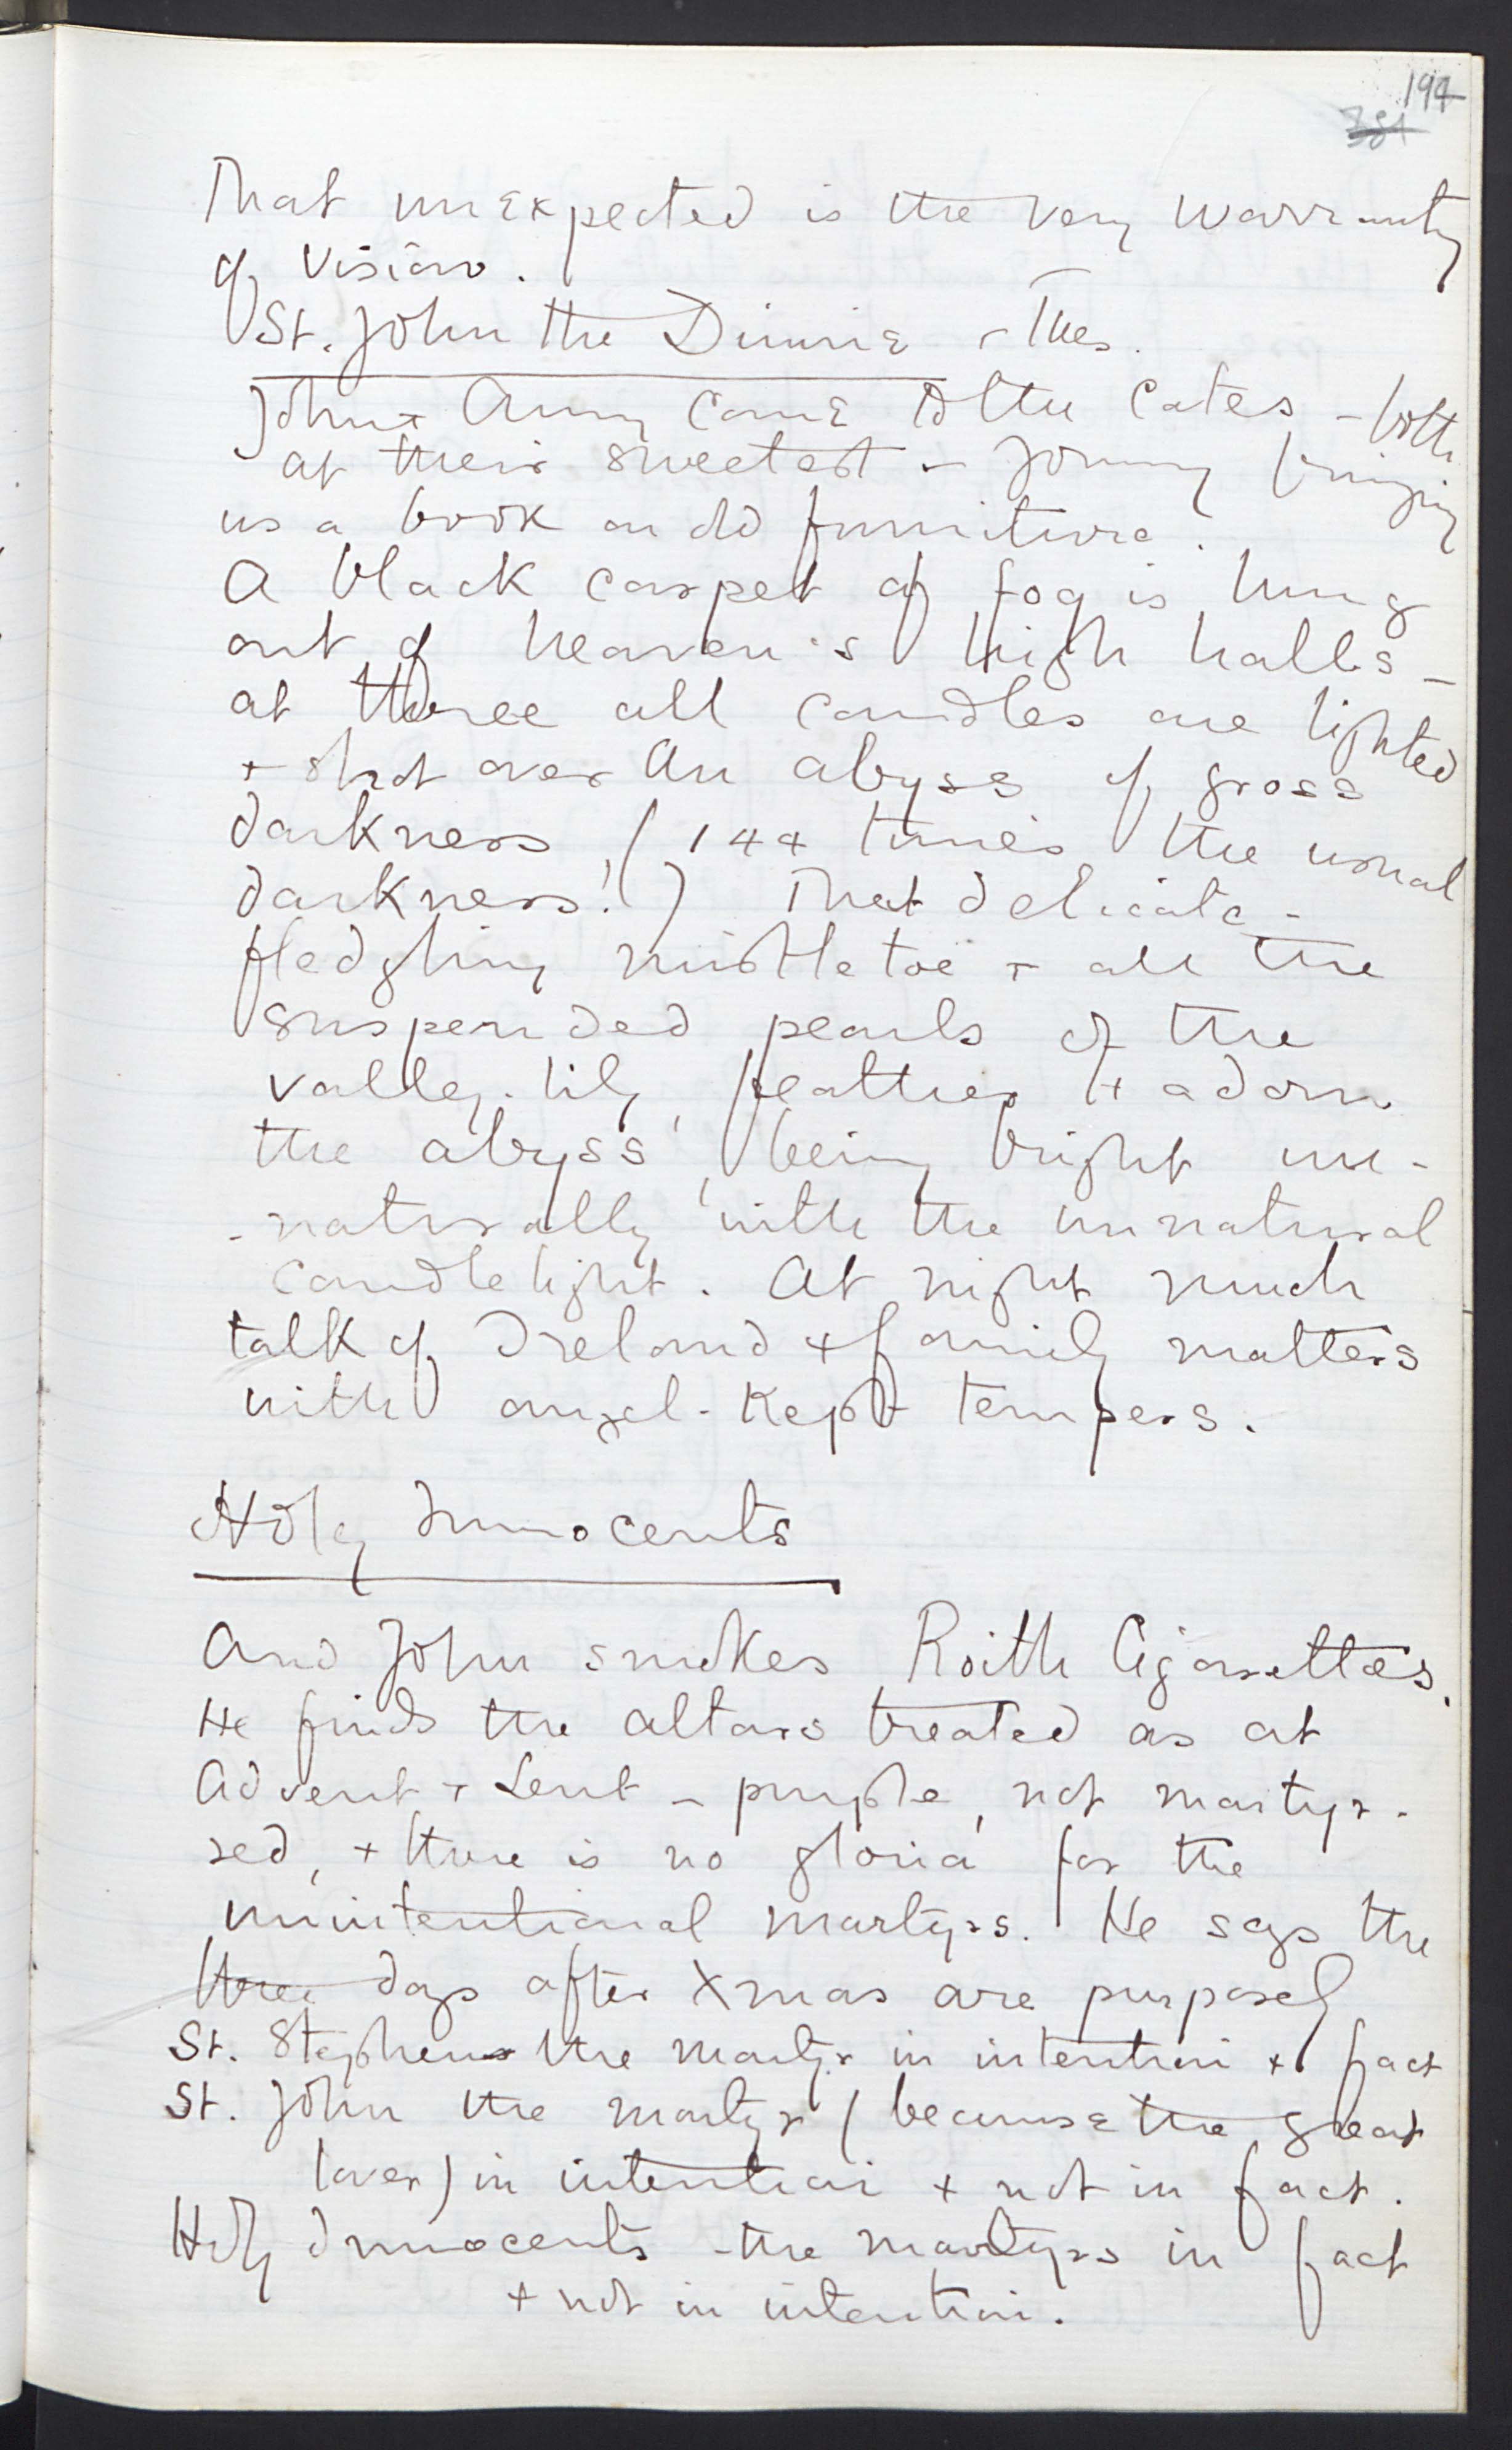 194
381
That unexpected is the very warranty
of vision.
St. John the Divine - Tues.
John + Amy come to the Cates - both
at their sweetest - Jonny bringing
us a book on old furniture.
A black carpet of fog is hung
out of heaven's high halls -
at three all candles are lighted
+ shot over an abyss of gross
darkness (144 times the usual
darkness!) That delicate -
fledgling mistletoe + all the
suspended pearls of the
valley-lily, feather + adorn
the abyss, being bright un-
-naturally with the unnatural
candlelight. At night much
talk of Ireland + family matters
with angel-kept tempers.
Holy Innocents
And John smokes Roith Cigarettes.
He finds the altars treated as at
Advent + Lent - purple, not martyr-
red, + there is no gloria for the
unintentional martyrs. He says the
three days after Xmas are purposely
St. Stephens the martyr in intention + fact
St. John the martyr (because the great
lover) in intention + not in fact.
Holy Innocents - the martyrs in fact
+ not in intention.